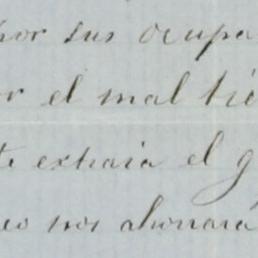 por sus ocupa
or el mal tie
te extraia el g
eo nos ahorrará